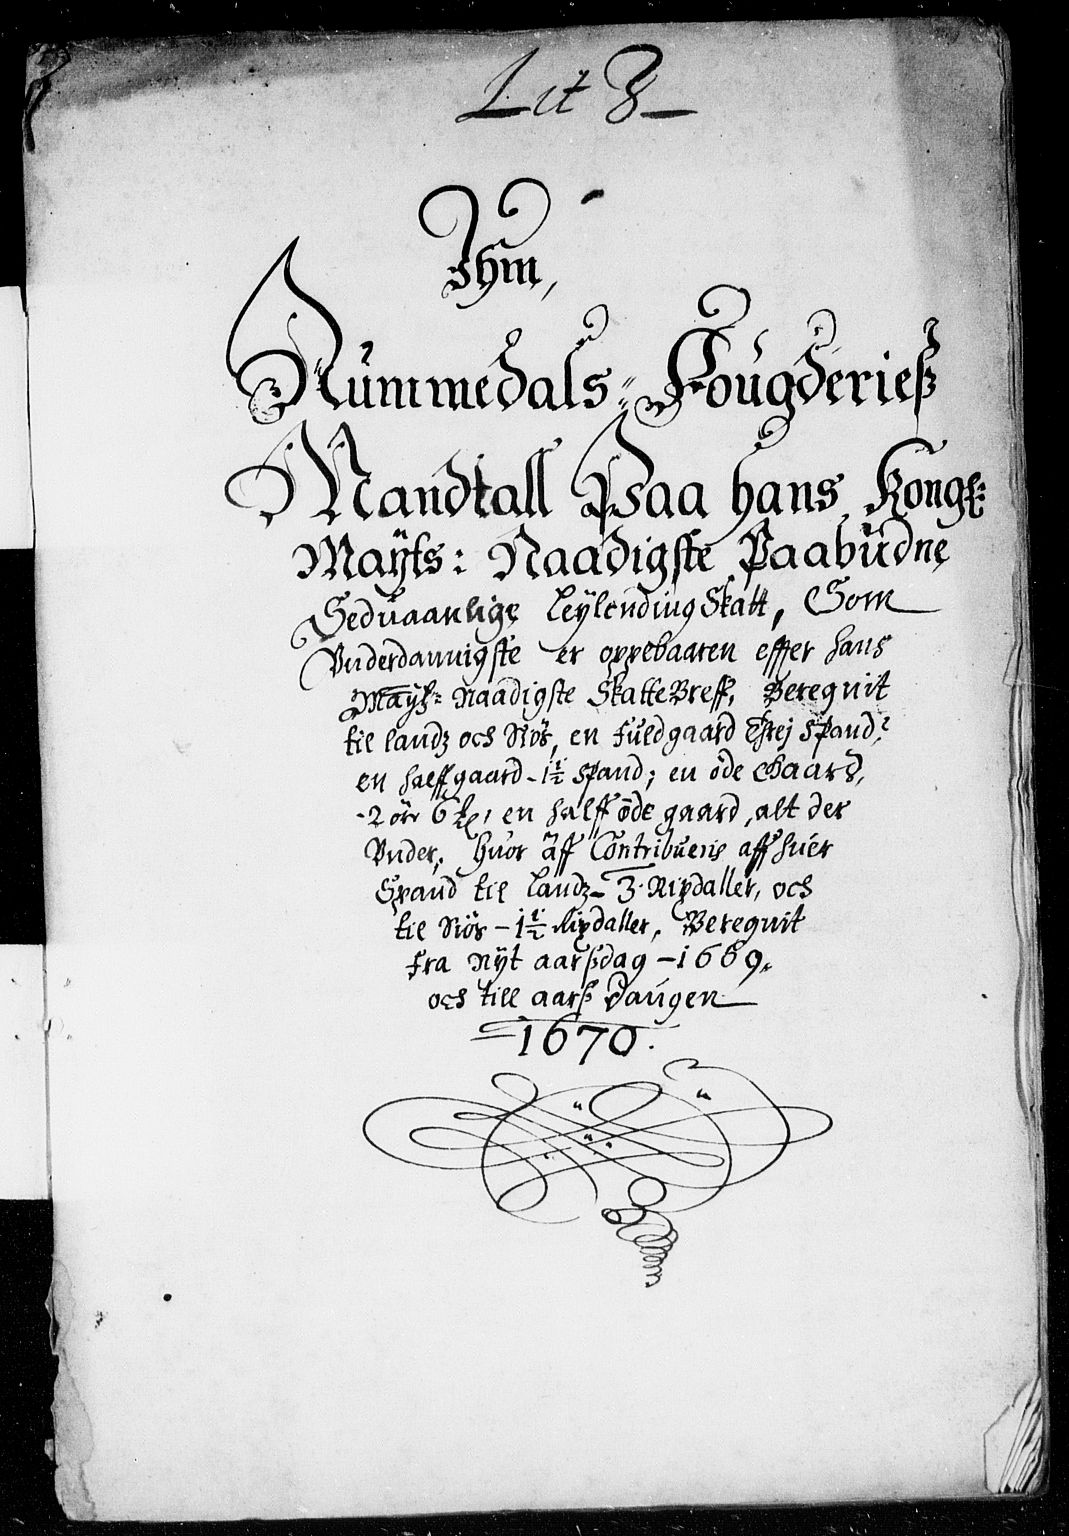 Lit B
Ihm,
Nummedals Fougderieß
Mandtall Paa hans Kongl:
Mayts: Naadigste Paabudne
Seduaanlige Leylending Skatt, Som
Vnderdannigste er oppebaaren effter hans
Mayts: Naadigste Skatte Breff, Beregnit
til landz och Siös, en fuldgaard Threj Spand,
en halffgaard - 1½ Spand; en öde Gaard,
2 ör, en halff öde gaard, alt der
Vnder, huor aff Contribueris aff huer
Spand til landz - 3 Rixdaller, och
til Siös - 1½ Rixdaller, Beregnit
fra Nyt aarßdag - 1669,
och till aarß Daugen
1670.